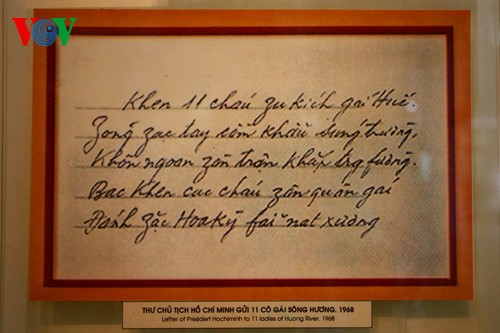 VOV
Khen 11 cháu zu kích gái Huế.
Zõng zạc tay cầm khẩu súng trường,
Khôn ngoan zàn trận khắp trg fường.
Bác khen các cháu zân quân gái
Đánh zặc Hoa Kỳ fải nát xương
THƯ CHỦ TỊCH HỒ CHÍ MINH GỬI 11 CÔ GÁI SÔNG HƯƠNG. 1968
Letter of Presidert Hochiminh to 11 ladies of Huong River. 1968